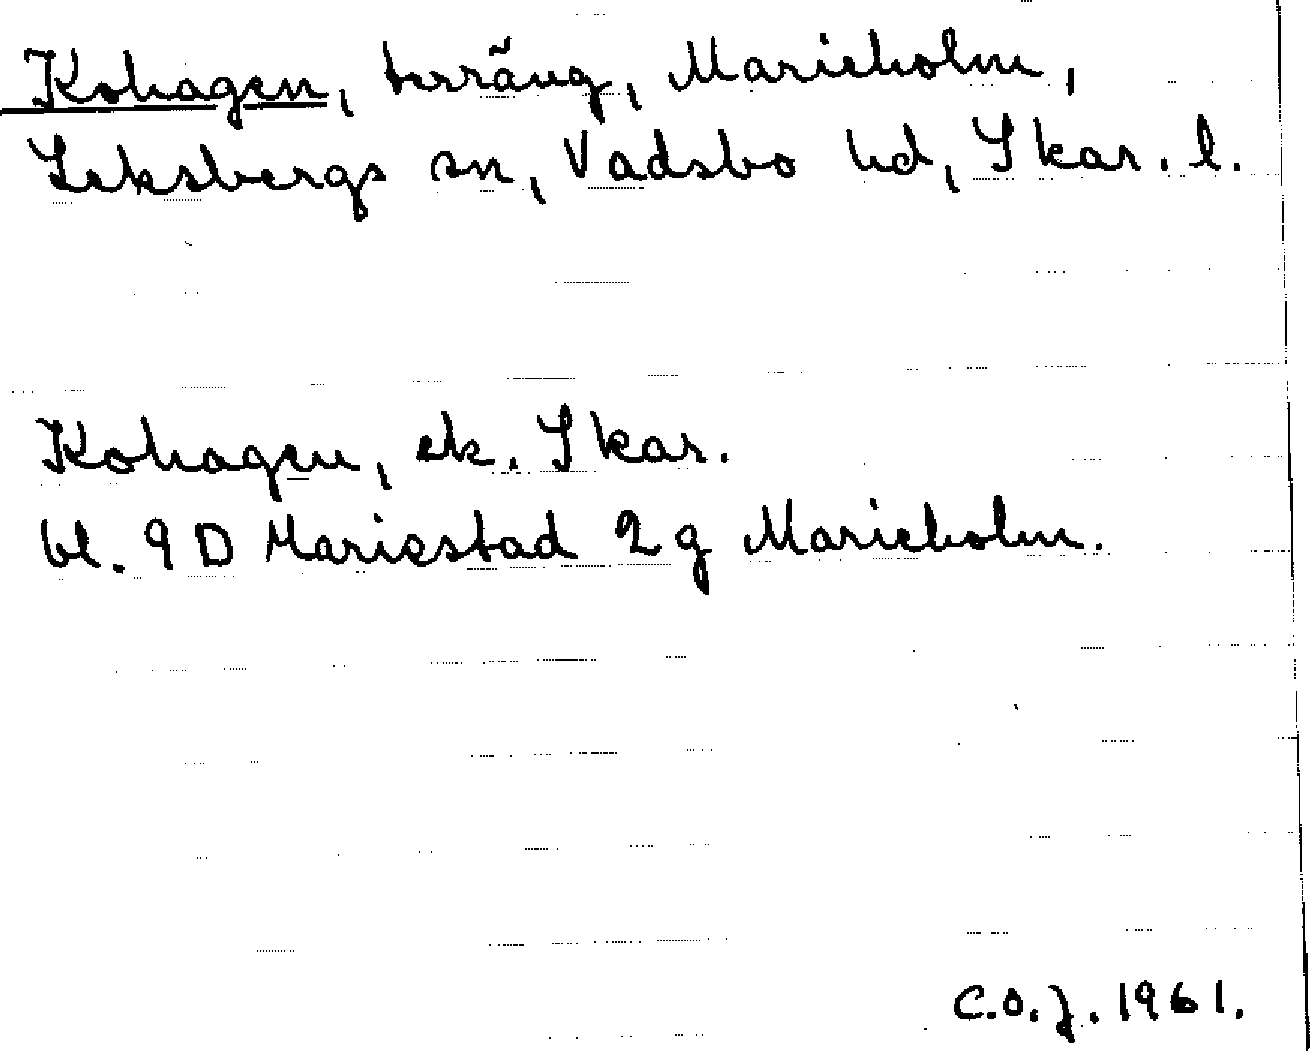 Kohagen, terräng, Marieholm,
Leksbergs sn, Vadsbo hd, Skar. l.
Kohagen, ek. Skar.
bl. 9 D Mariestad 2 g Marieholm.
C.O.J. 1961.